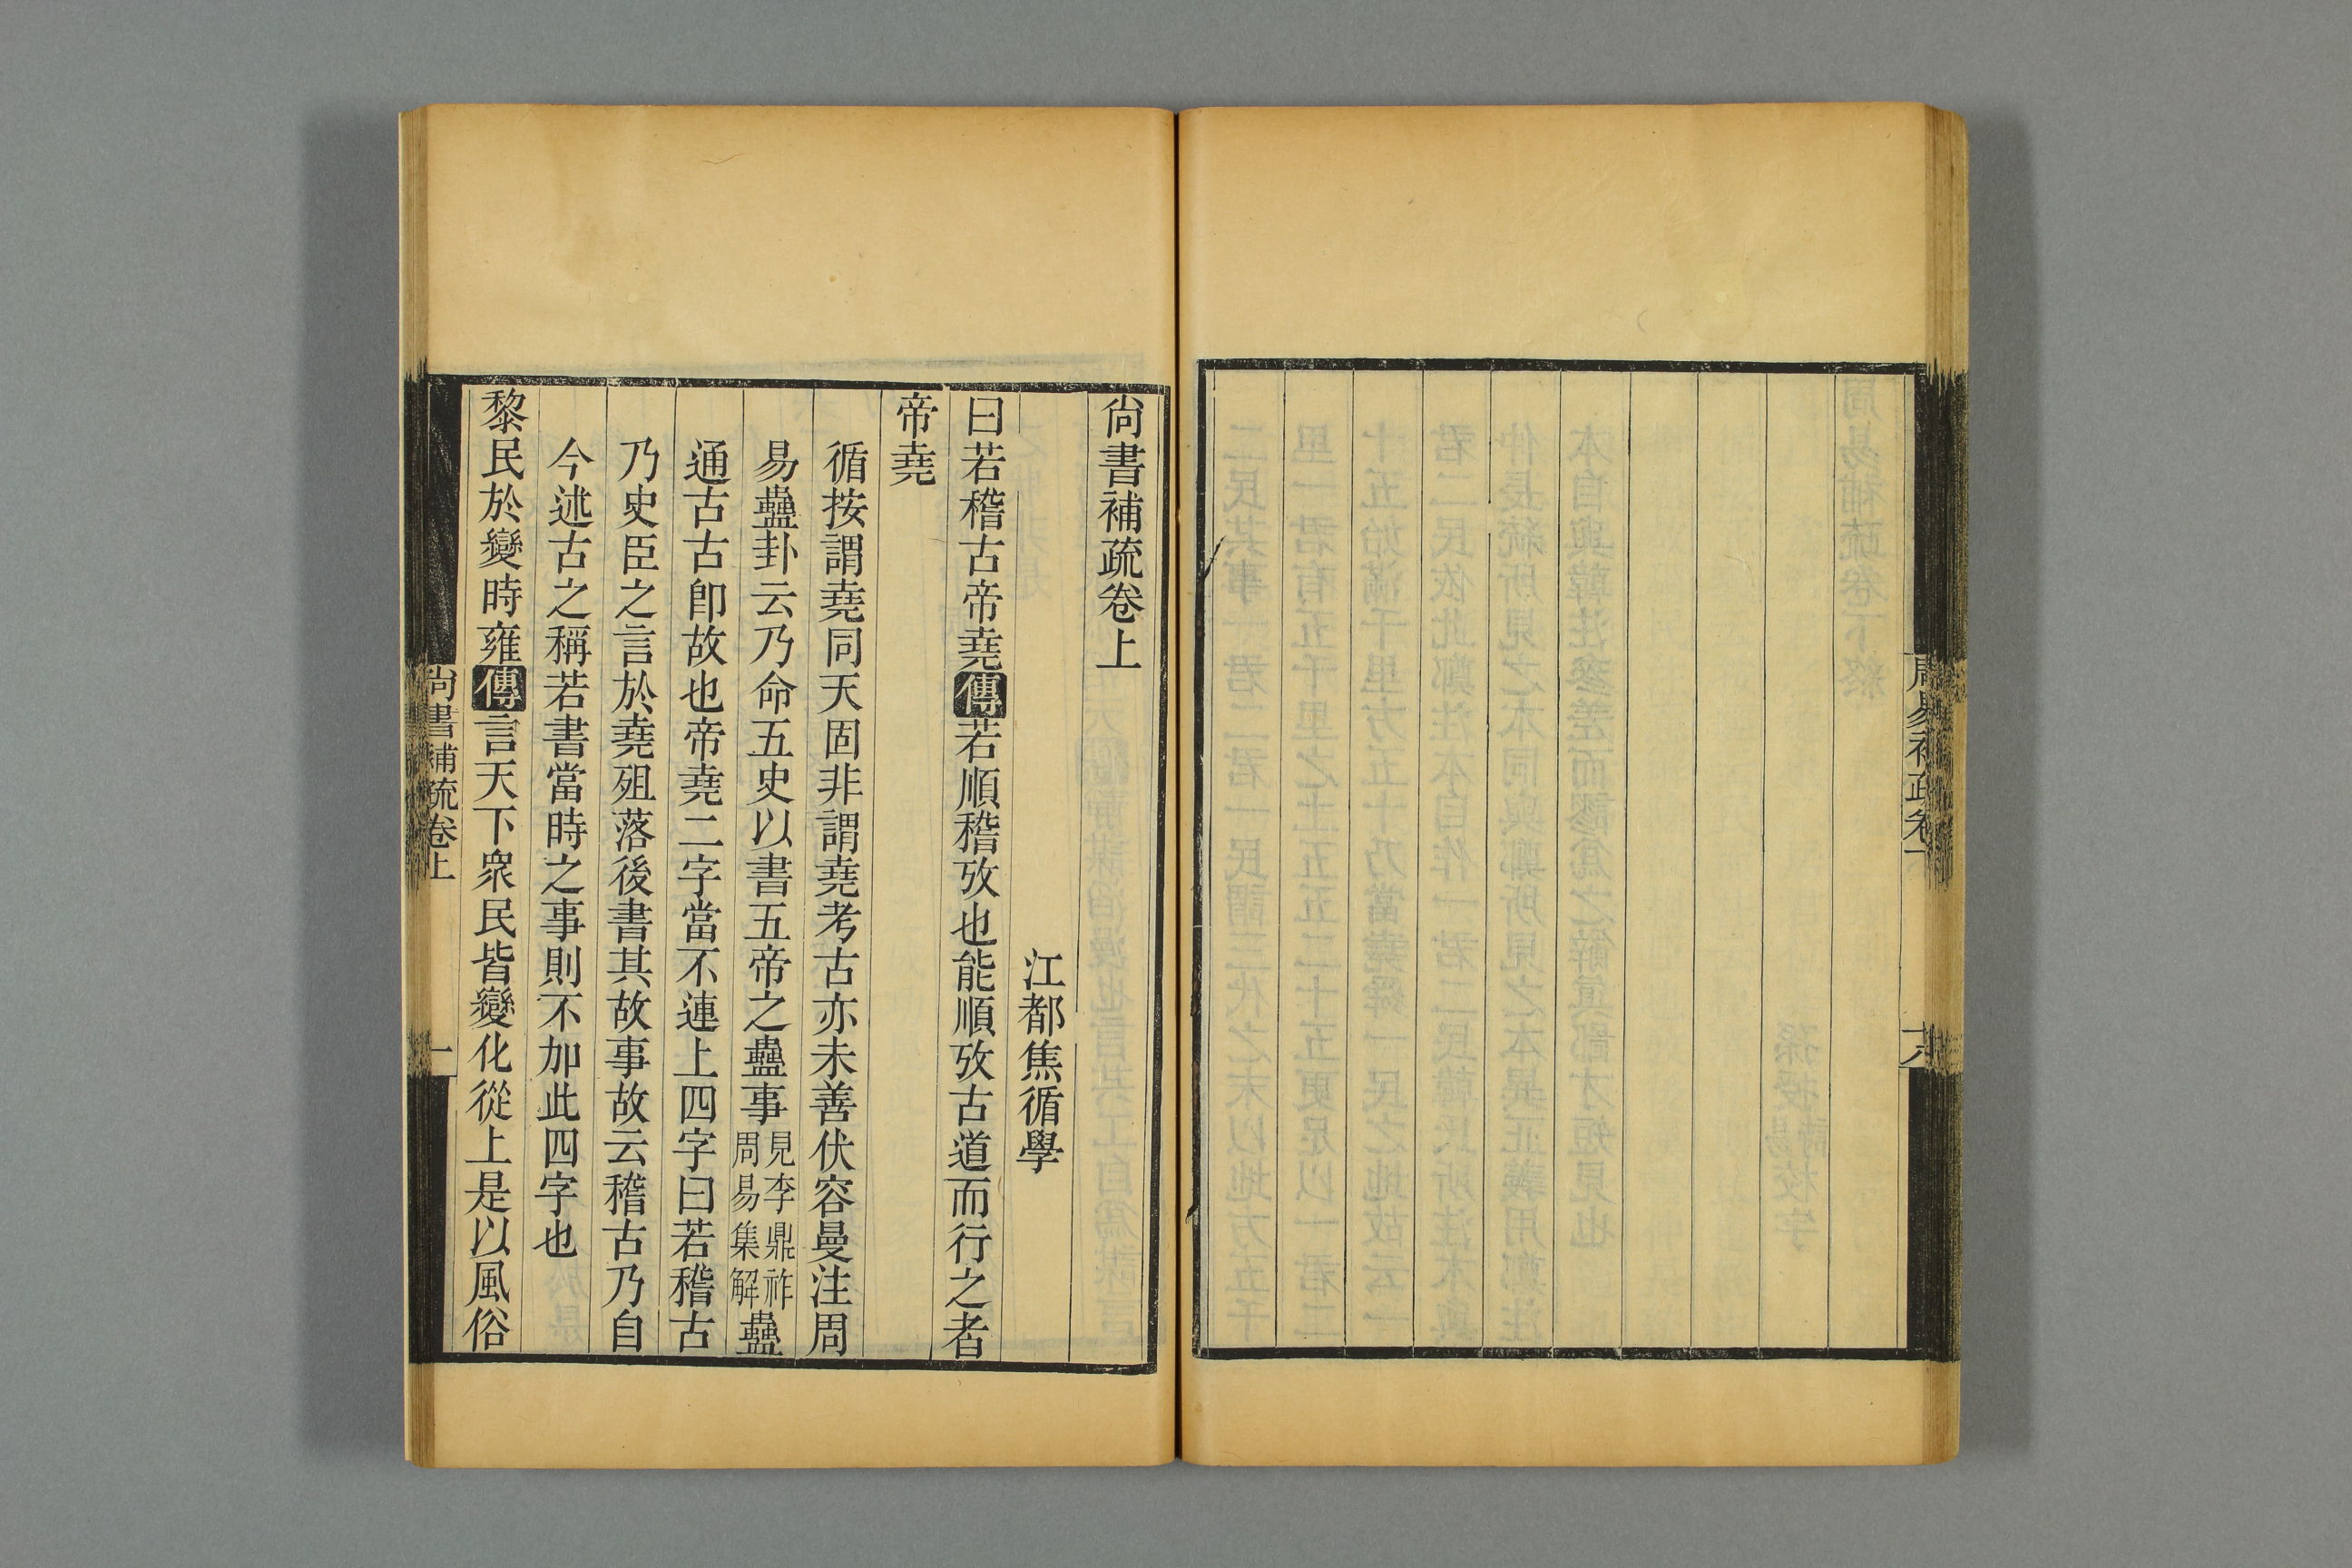 周易補疏卷下
尙書補疏卷上
江都焦循學
曰若稽古帝堯傳若順稽攷也能順攷古道而行之者
帝堯
循按謂堯同天固非謂堯考古亦未善伏容曼注周
易蠱卦云乃命五史以書五帝之蠱事見李鼎祚周易集解蠱
通古古卽故也帝堯二字當不連上四字曰若稽古
乃史臣之言於堯殂落後書其故事故云稽古乃自
今述古之稱若書當時之事則不加此四字也
黎民於變時雍傳言天下衆民皆變化從上是以風俗
尙書補疏卷上
一